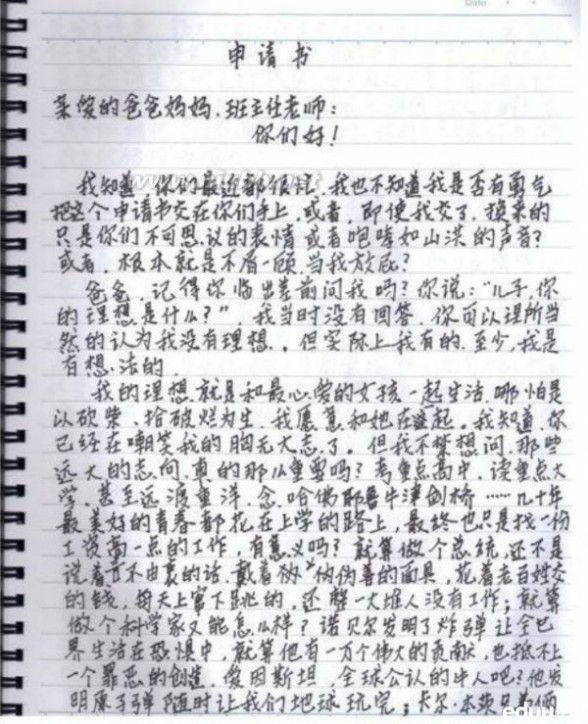 申请书
亲爱的爸爸妈妈.班主任老师:
你们好!
我知道 你们最近都很忙.我也不知道我是否有勇气
把这个申请书交在你们手上.或者,即使我交了.换来的
只是你们不可思议的表情 或者咆哮如山洪的声音?
或者,根本就是不屑一顾.当我放屁?
爸爸,记得你临出差前问我吗?你说:“儿子,你
的理想是什么?”,我当时没有回答.你可以理所当
然的认为我没有理想。但实际上我有的.至少,我是
有想法的.
我的理想.就是和最心爱的女孩一起生活.哪怕是
以砍柴、拾破烂为生.我愿意和她在一起。我知道.你
已经在嘲笑我的胸无大志了。但我不禁想问.那些
远大的志向.真的那么重要吗?考重点高中.读重点大
学.甚至远渡重洋.念哈佛耶鲁牛津剑桥……几十年
最美好的青春都花在上学的路上,最终也只是找一份
工资高一点的工作,有意义吗?就算做个总统,还不是
说着言不由衷的话.戴着 伪善的面具,花着老百姓交
的钱,每天上窜下跳的,还整一大堆人没有工作;就算
做个科学家又能怎么样?诺贝尔发明了炸弹让全世
界生活在恐惧中,就算他有一万个伟大的贡献,也抵不上
一个罪恶的创造.爱因斯坦,全球公认的牛人吧?他发
明原子弹随时让我们地球玩完;卡尔·本茨兄弟俩
eduu